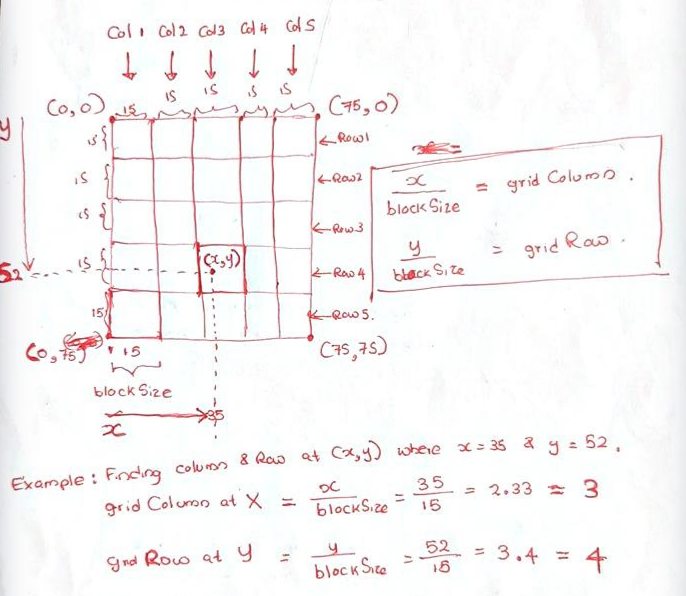 Col 1 Col 2 Col3 Col 4 Col 5
15 15 15 15 15
(0,0) (75,0)
y
15 ←Row1
15 ←Row2
15 ←Row3
15 (x,y) ←Row 4
52
15 ←Row5.
(0,75) (75,75)
15
blockSize
35
x
x
blockSize
= grid Column.
y
block Size
= grid Row.
Example: Finding column & Row at (x,y) where x=35 & y=52.
grid Column at X = x / blockSize = 35 / 15 = 2.33 = 3
grid Row at y = y / blockSize = 52 / 15 = 3.4 = 4